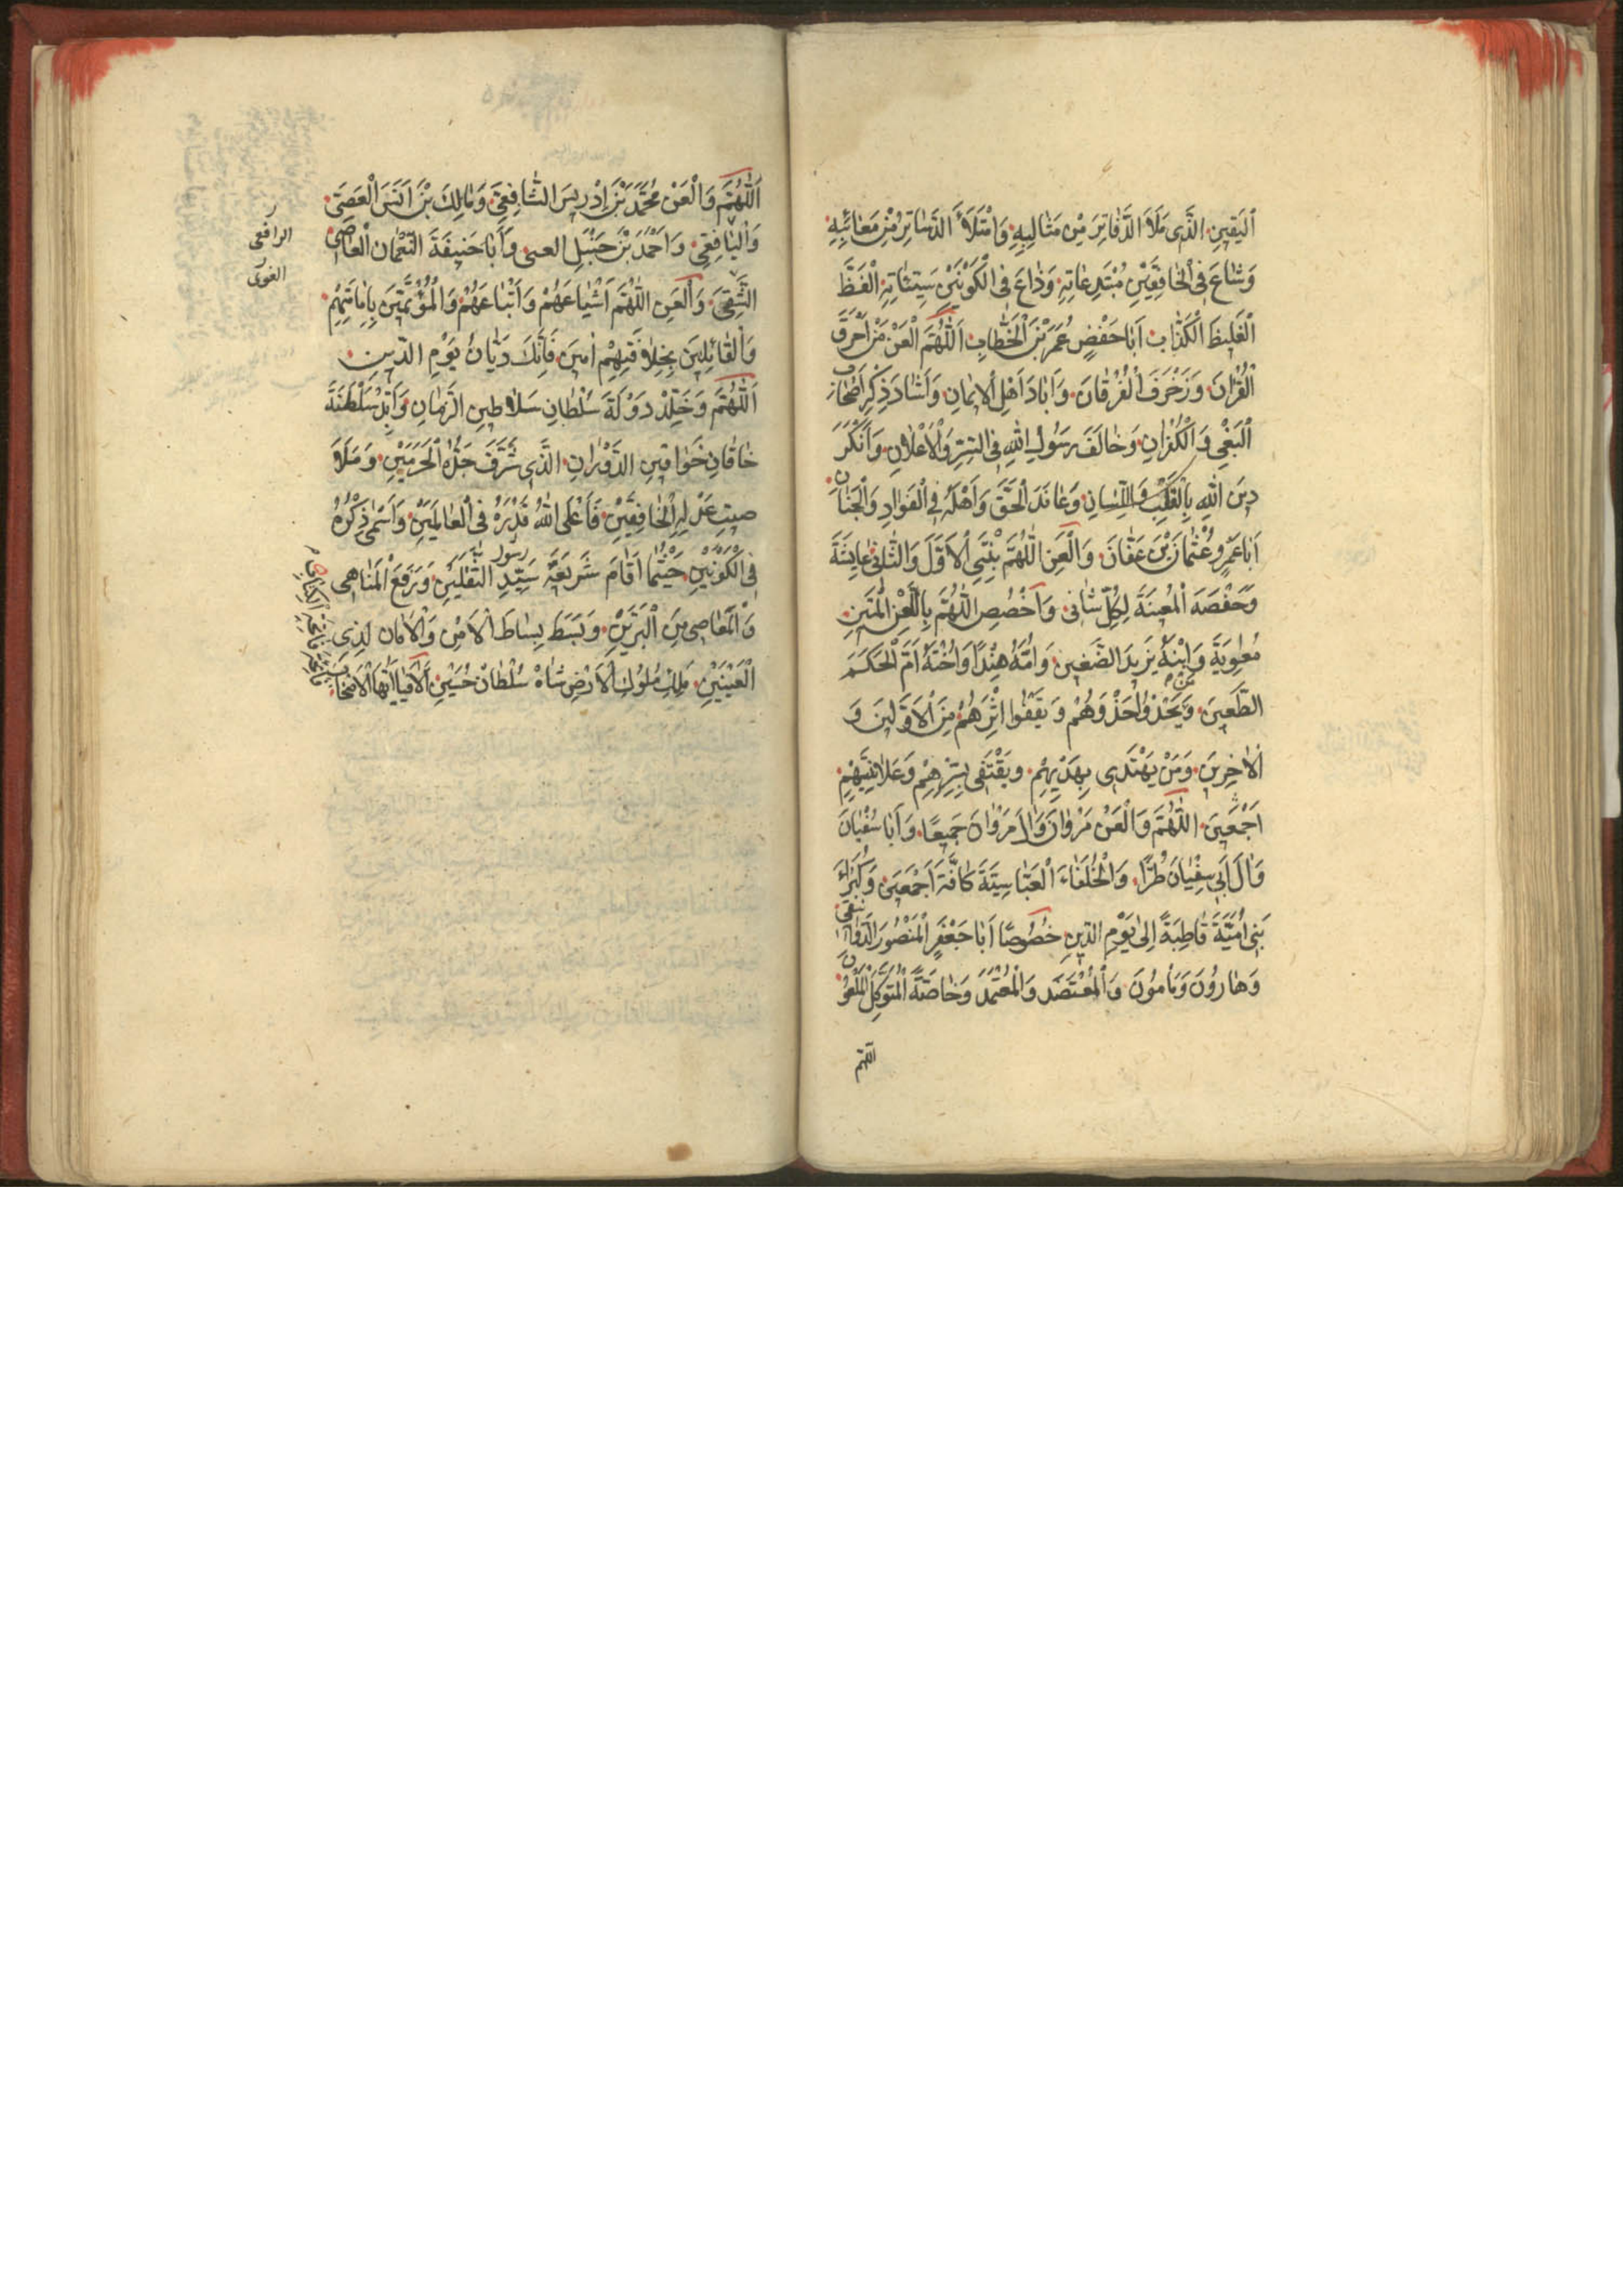 اَلْيَقِينِ الَّذِى مَلَاَ الدَّفَاتِرَ مِنْ مَثَالِبِهِ وَامْتَلَأَ الدَّسَاتِرُ مِنْ مَعَائِبِهِ
وَشَاعَ فِى الْخَافِقَيْنِ مُبْتَدِعَاتِهِ وَذَاعَ فِى الْكَوْنَيْنِ سَيِّئَاتِهِ الْفَظَّ
الْغَلِيظَ الْكَذَّابَ اَبَا حَفْصٍ عُمَرَ بْنَ الْخَطَّابِ اَللّٰهُمَّ الْعَنْ مَنْ اَحْرَقَ
الْقُرْاٰنَ وَزَخْرَفَ الْفُرْقَانَ وَاَبَادَ اَهْلَ الْاِيمَانِ وَاَشَادَ ذِكْرَ اَصْحَابِ
الْبَغْىِ وَالْكُفْرَانِ وَخَالَفَ رَسُولَ اللّٰهِ فِى السِّرِّ وَالْاِعْلَانِ وَاَنْكَرَ
دِينَ اللّٰهِ بِالْقَلْبِ وَاللِّسَانِ وَعَانَدَ الْحَقَّ وَاَهْلَهُ فِى الْفَوَادِ وَالْجَنَانِ
اَبَا عَمْرٍو عُثْمَانَ بْنَ عَفَّانَ وَالْعَنِ اللّٰهُمَّ بِنْتَىِ الْاَوَّلِ وَالثَّانِى عَايِشَةَ
وَحَفْصَةَ الْمُعِينَةَ لِكُلِّ شَانِى وَاخْصُصِ اللّٰهُمَّ بِاللَّعْنِ الْمَتِينِ
مُعٰوِيَةَ وَابْنَهُ يَزِيدَ الضَّغِينَ وَاُمَّهُ هِنْدًا وَاُخْتَهُ اُمَّ الْحَكَمَ
الطَّعِينَ وَمَنْ يَحْذُوا حَذْوَهُمْ وَيَقْفُوا اِثْرَهُمْ مِنَ الْاَوَّلِينَ وَ
الْاٰخِرِينَ وَمَنْ يَهْتَدِى بِهَدْيِهِمْ وَيَقْتَفِى بِسِرِّهِمْ وَعَلَانِيَتِهِمْ
اَجْمَعِينَ اللّٰهُمَّ وَالْعَنْ مَرْوَانَ وَاٰلَ مَرْوَانَ جَمِيعًا وَاَبَا سُفْيَانَ
وَاٰلَ اَبِى سُفْيَانَ طُرًّا وَالْخُلَفَاءَ الْعَبَّاسِيَّةَ كَافَّةً اَجْمَعِينَ وَكُبَرَاءَ
بَنِى اُمَيَّةَ قَاطِبَةً اِلٰى يَوْمِ الدِّينِ خُصُوصًا اَبَا جَعْفَرٍ الْمَنْصُورَ الدَّوَانِقِىَّ
وَهَارُونَ وَمَامُونَ وَالْمُعْتَضَدَ وَالْمُعْتَمَدَ وَخَاصَّةً الْمُتَوَكِّلَ الْمَلْعُونَ
اللّٰهُمَّ
اَللّٰهُمَّ وَالْعَنْ مُحَمَّدَ بْنَ اِدْرِيسَ الشَّافِعِىَّ وَمَالِكَ بْنَ اَنَسَ الْعَصِىَّ
وَالْيَافِعِىَّ وَاَحْمَدَ بْنَ حَنْبَلِ الْعمى وَاَبَا حَنِيفَةَ النُّعْمَانَ الْعَاصِىَ
الشَّقِىَّ وَالْعَنِ اللّٰهُمَّ اَشْيَاعَهُمْ وَاَتْبَاعَهُمْ وَالْمُؤْتَمِّينَ بِاِمَامَتِهِمْ
وَالْقَائِلِينَ بِخِلَافَتِهِمْ اٰمِينَ فَاِنَّكَ دَيَّانُ يَوْمِ الدِّينِ
اَللّٰهُمَّ وَخَلِّدْ دَوْلَةَ سُلْطَانِ سَلَاطِينِ الزَّمَانِ وَاَبِّدْ سَلْطَنَةَ
خَاقَانِ خَوَاقِينِ الدَّوْرَانِ الَّذِى شَرَّفَ جَدُّهُ الْحَرَمَيْنِ وَمَلَاَ
صِيتُ عَدْلِهِ الْخَافِقَيْنِ فَاَعْلَى اللّٰهُ قَدْرَهُ فِى الْعَالَمَيْنِ وَاَسْمٰى ذِكْرَهُ
فِى الْكَوْنَيْنِ حَيْثُمَا اَقَامَ شَرِيعَةَ رسول سَيِّدِ الثَّقَلَيْنِ وَرَفَعَ الْمَنَاهِى
وَالْمَعَاصِى مِنَ الْبَرَّيْنِ وَبَسَطَ بِسَاطَ الْاَمْنِ وَالْاَمَانِ لِذِى
الْعَيْنَيْنِ مَلِكِ مُلُوكِ الْاَرْضِ شَاهْ سُلْطَانْ حُسَيْنِ اَلَا فَيَا اَيُّهَا
الرافعى
الغوى